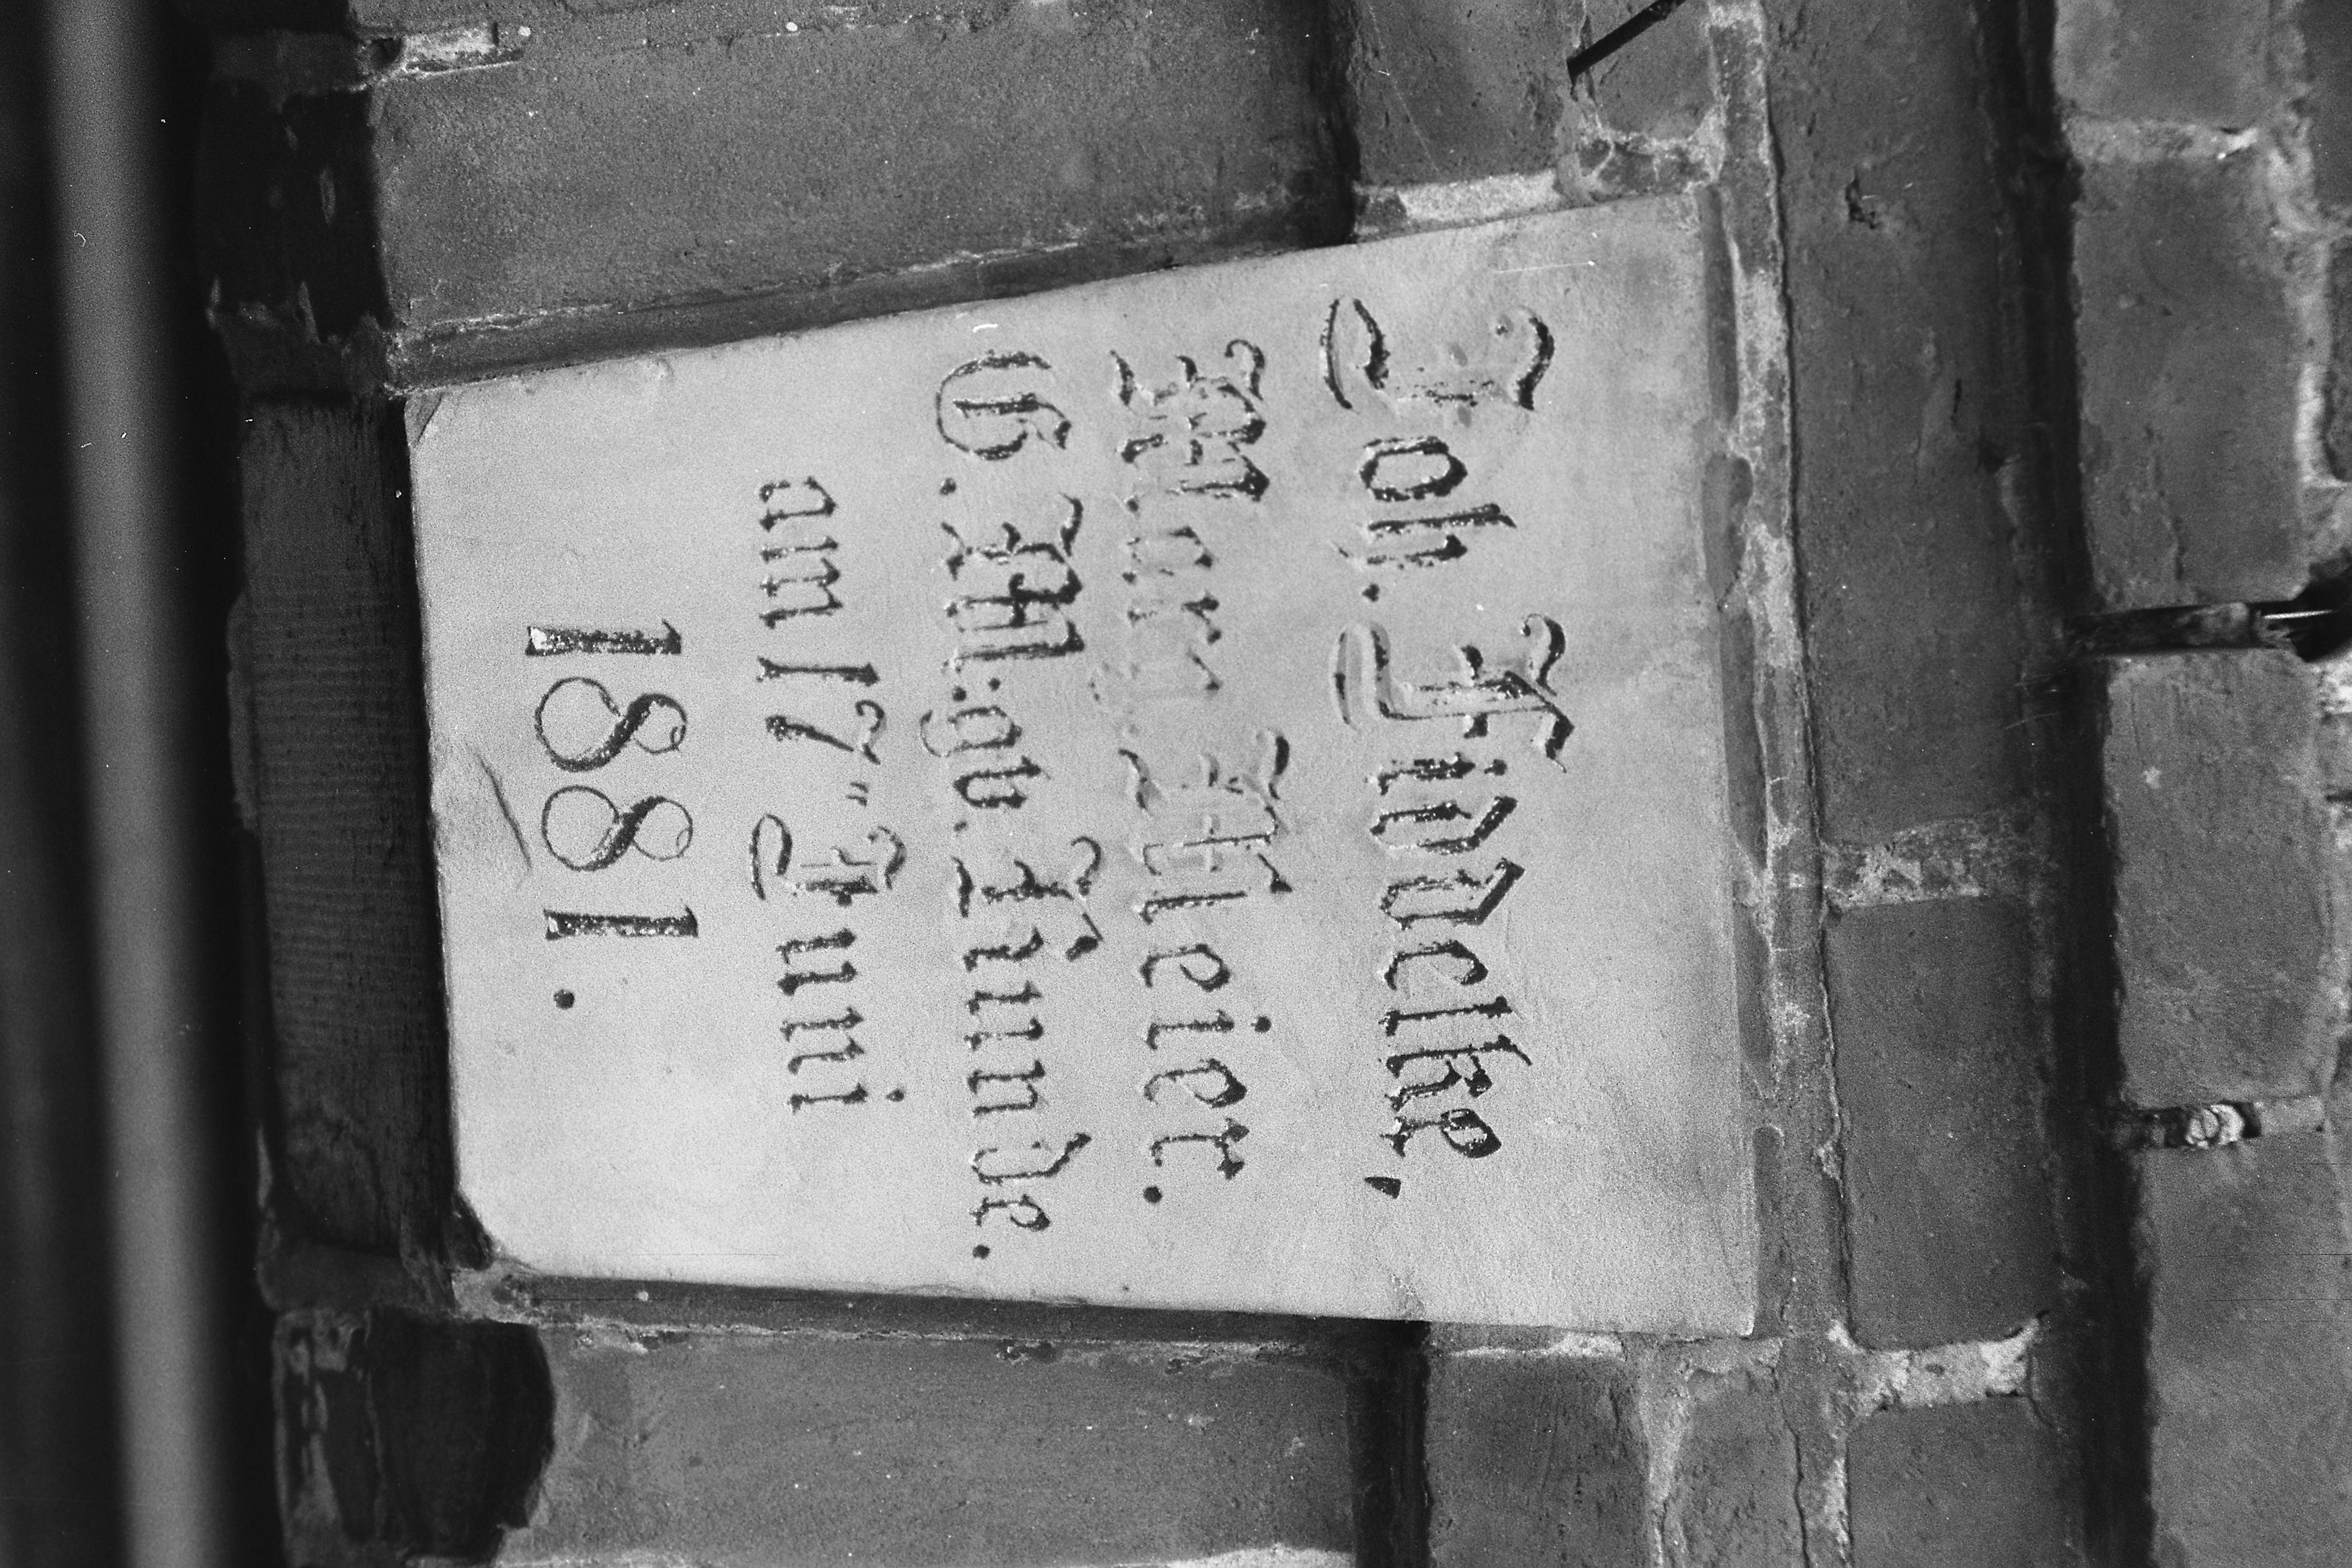 Joh. Fiddelke,
Marg. Meier.
G. M:gb. Runde.
am 17" Juni
1881.